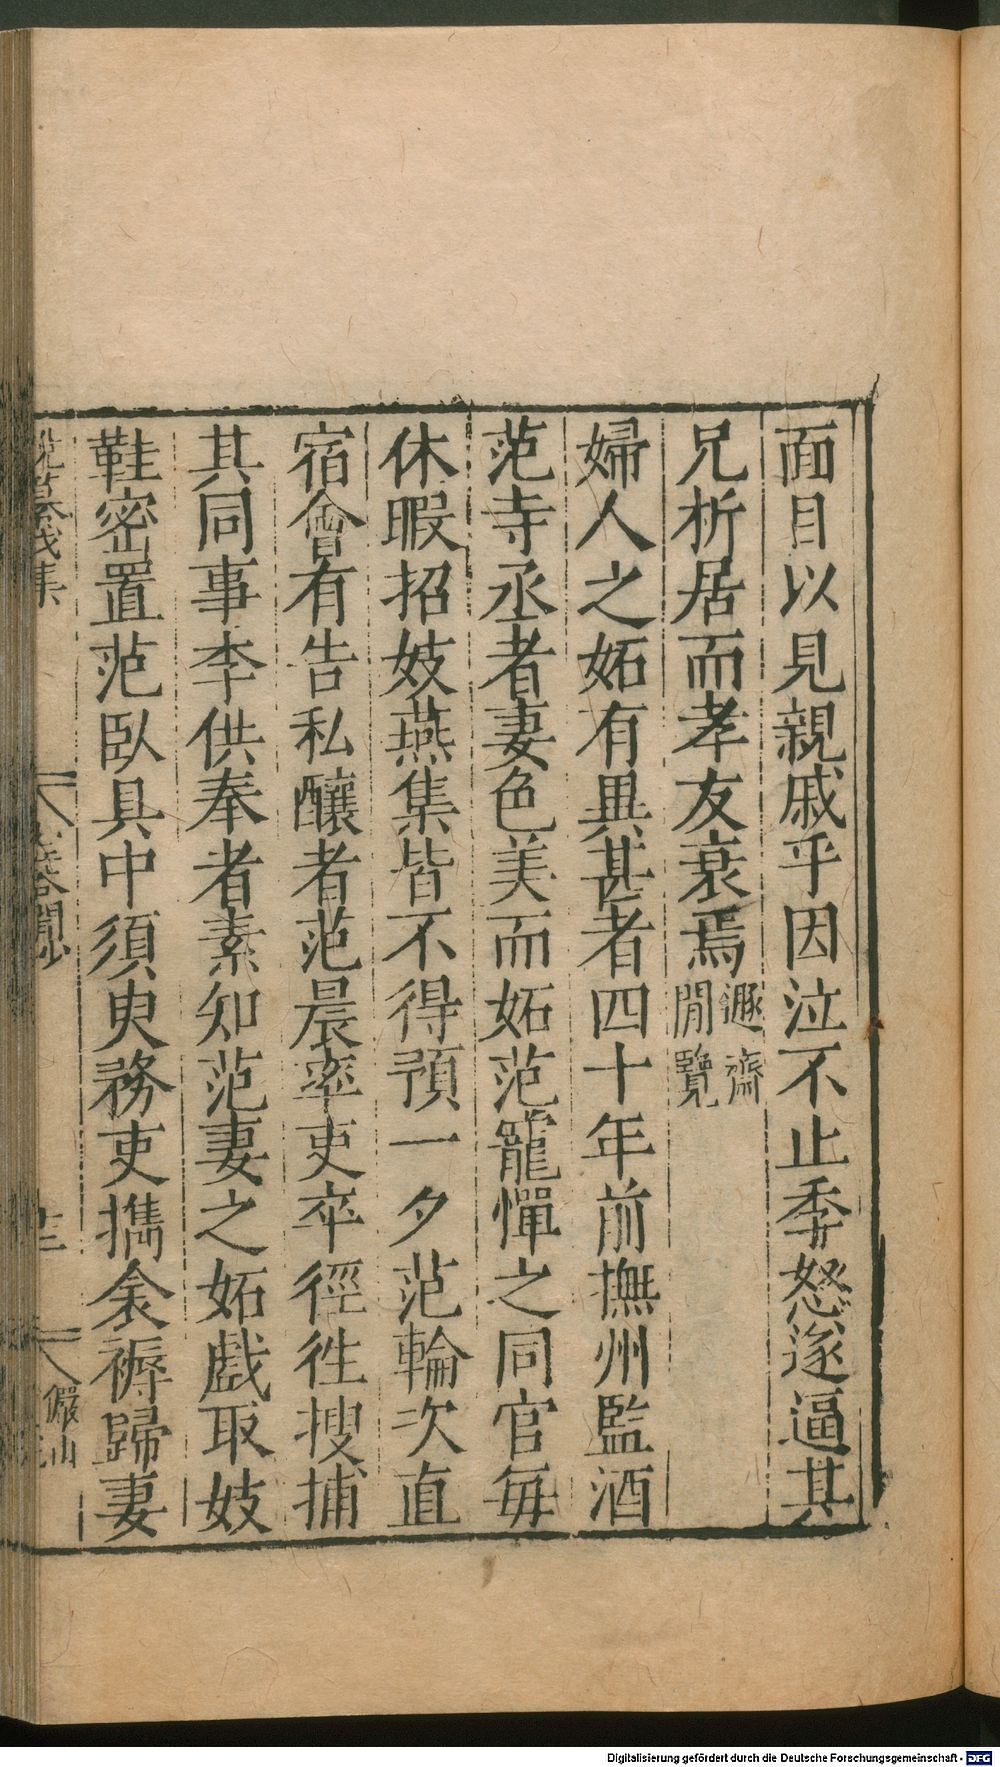 面目以見親戚乎因泣不止季怒遂逼其
兄析居而孝友衰焉遯齋閒覽
婦人之妬有異甚者四十年前撫州監酒
范寺丞者妻色美而妬范寵憚之同官每
休暇招妓燕集皆不得預一夕范輪次直
宿會有告私釀者范晨率吏卒徑徃搜捕
其同事李供奉者素知范妻之妬戲取妓
鞋密置范臥具中須臾務吏擕衾褥歸妻
Digitalisierung gefördert durch die Deutsche Forschungsgemeinschaft - DFG